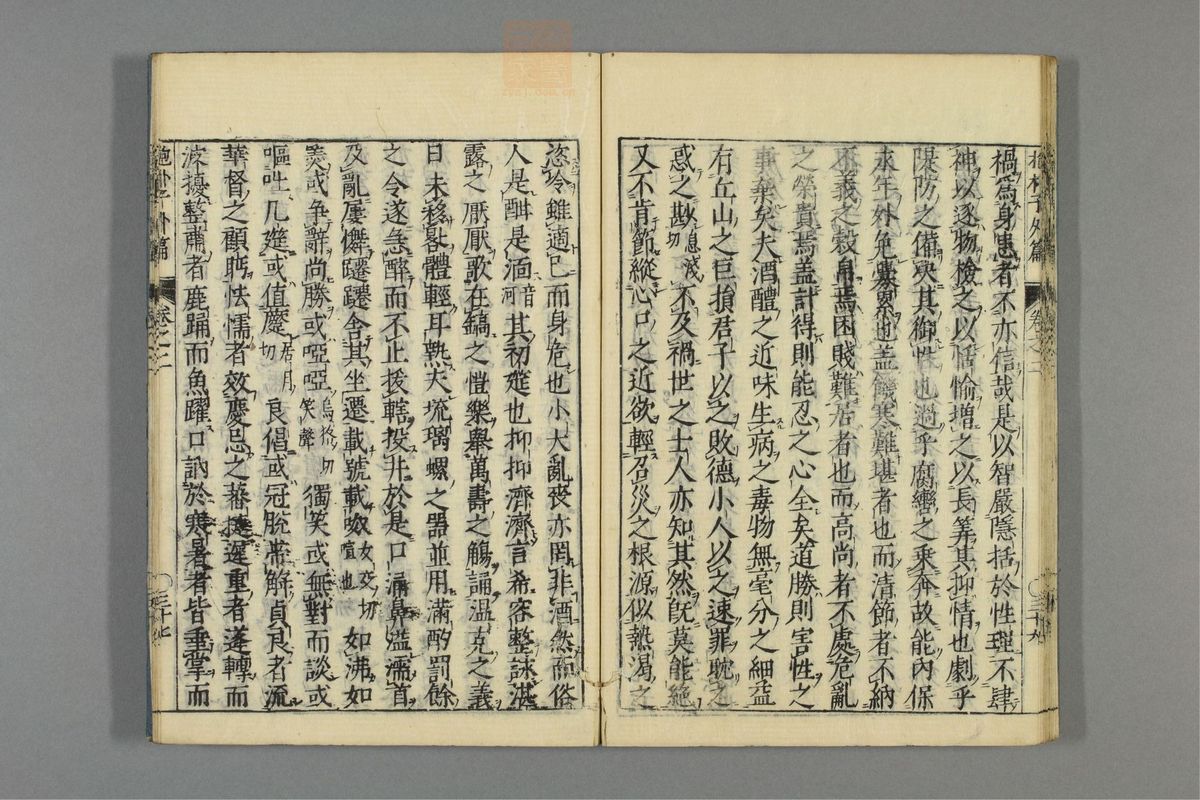 禍為身患者不亦信哉是以智嚴隱括於性理不肆
神以逐物檢之以恬愉增之以長筭其抑情也劇乎
隄防之備決其御性也過乎腐轡之乘奔故能內保
永年外免釁累也蓋饑寒難堪者也而清節者不納
不義之穀焉困賤難居者也而高尚者不處危亂
之榮貴焉蓋計得則能忍之心全矣道勝則害性之
事棄矣夫酒醴之近味生病之毒物無毫分之細益
有丘山之巨損君子以之敗德小人以之速罪耽之
惑之尠息淺切不及禍世之士人亦知其然既莫能絕
又不肯節縱心口之近欲輕召災之根源似熱渴之
恣冷雖適己而身危也小大亂喪亦罔非酒然而俗
人是酣是湎音河其初筵也抑抑濟濟言希容整詠湛
露之厭厭歌在鎬之愷樂舉萬壽之觴誦温克之義
日未移晷體輕耳熱夫琉璃螺之器並用滿酌罰餘
之令遂急醉而不止拔轄投井於是口涌鼻溢濡首
及亂屢儛蹮蹮舍其坐遷載號載呶女交切諠也如沸如
羹或争辭尚勝或啞啞烏格切笑聲獨笑或無對而談或
嘔吐几筵或值蹷居月切良倡或冠脫帶解貞良者流
華督之顧眄怯懦者效慶忌之蕃捷遲重者蓬轉而
波擾整肅者鹿踊而魚躍口訥於寒暑者皆垂掌而
抱朴子外篇
卷之二
三十七